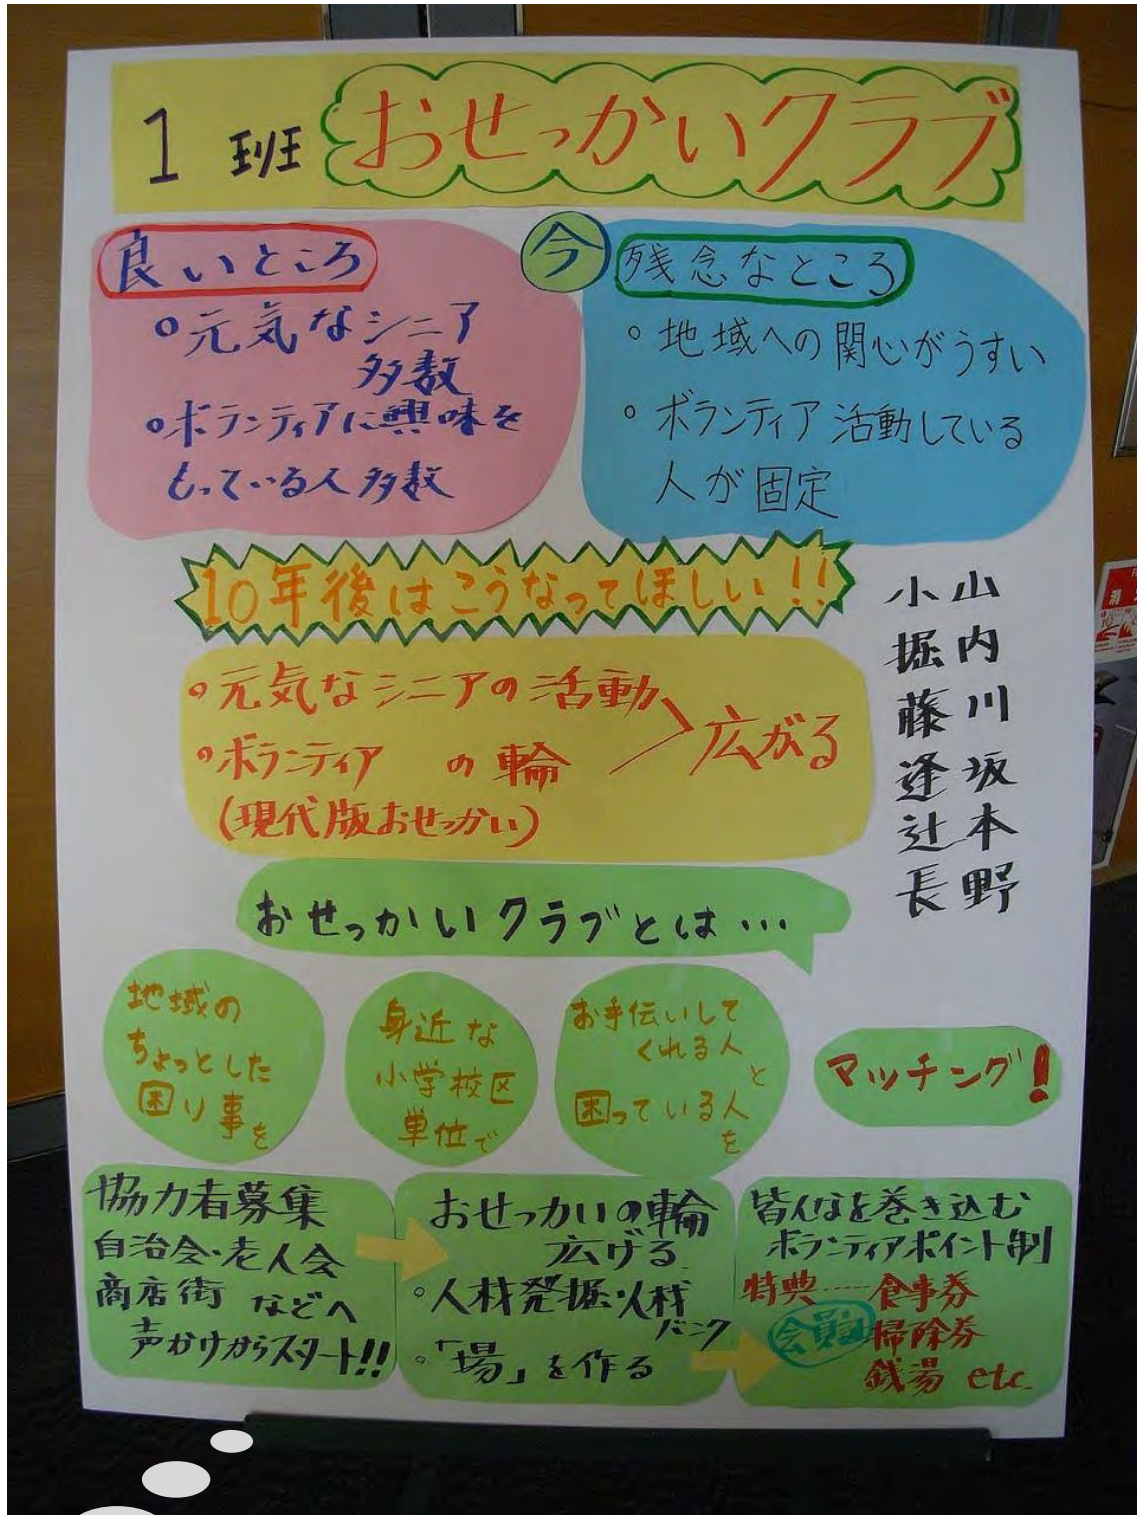 1班 おせっかいクラブ
今
良いところ
○元気なシニア
多数
○ボランティアに興味を
もっている人多数
残念なところ
○地域への関心がうすい
○ボランティア活動している
人が固定
10年後はこうなってほしい!!
○元気なシニアの活動
○ボランティア の輪
(現代版おせっかい)
広がる
小山
堀内
藤川
逢坂
辻本
長野
おせっかいクラブとは…
地域の
ちょっとした
困り事を
身近な
小学校区
単位で
お手伝いして
くれる人
と
困っている人
を
マッチング!
協力者募集
自治会・老人会
商店街 などへ
声かけからスタート!!
おせっかいの輪
広げる
○人材発掘・人材
バンク
○「場」を作る
皆んなを巻き込む
ボランティアポイント制
特典……食事券
会員証
掃除券
銭湯 etc